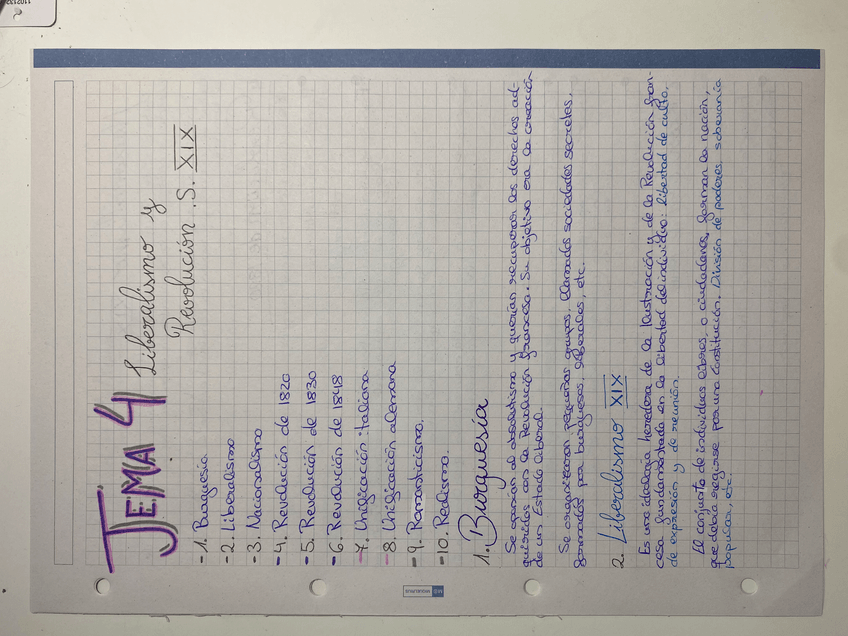 TEMA 4 Liberalismo y
Revolución S. XIX
- 1. Burguesía
- 2. Liberalismo
- 3. Nacionalismo
- 4. Revolución de 1820
- 5. Revolución de 1830
- 6. Revolución de 1848
- 7. Unificación italiana
- 8. Unificación alemana
- 9. Romanticismo.
- 10. Realismo.
1. Burguesía
Se oponían al absolutismo y querían recuperar los derechos ad-
quiridos con la Revolución francesa. Su objetivo era la creación
de un Estado liberal.
Se organizaron pequeños grupos, llamados sociedades secretas,
formados por burgueses, liberales, etc.
2. Liberalismo XIX
Es una ideología heredera de la Ilustración y de la Revolución fran-
cesa fundamentada en la libertad del individuo: libertad de culto,
de expresión y de reunión.
El conjunto de individuos libres, o ciudadanos, forman la nación,
que debía regirse por una Constitución. División de poderes, soberanía
popular, etc.